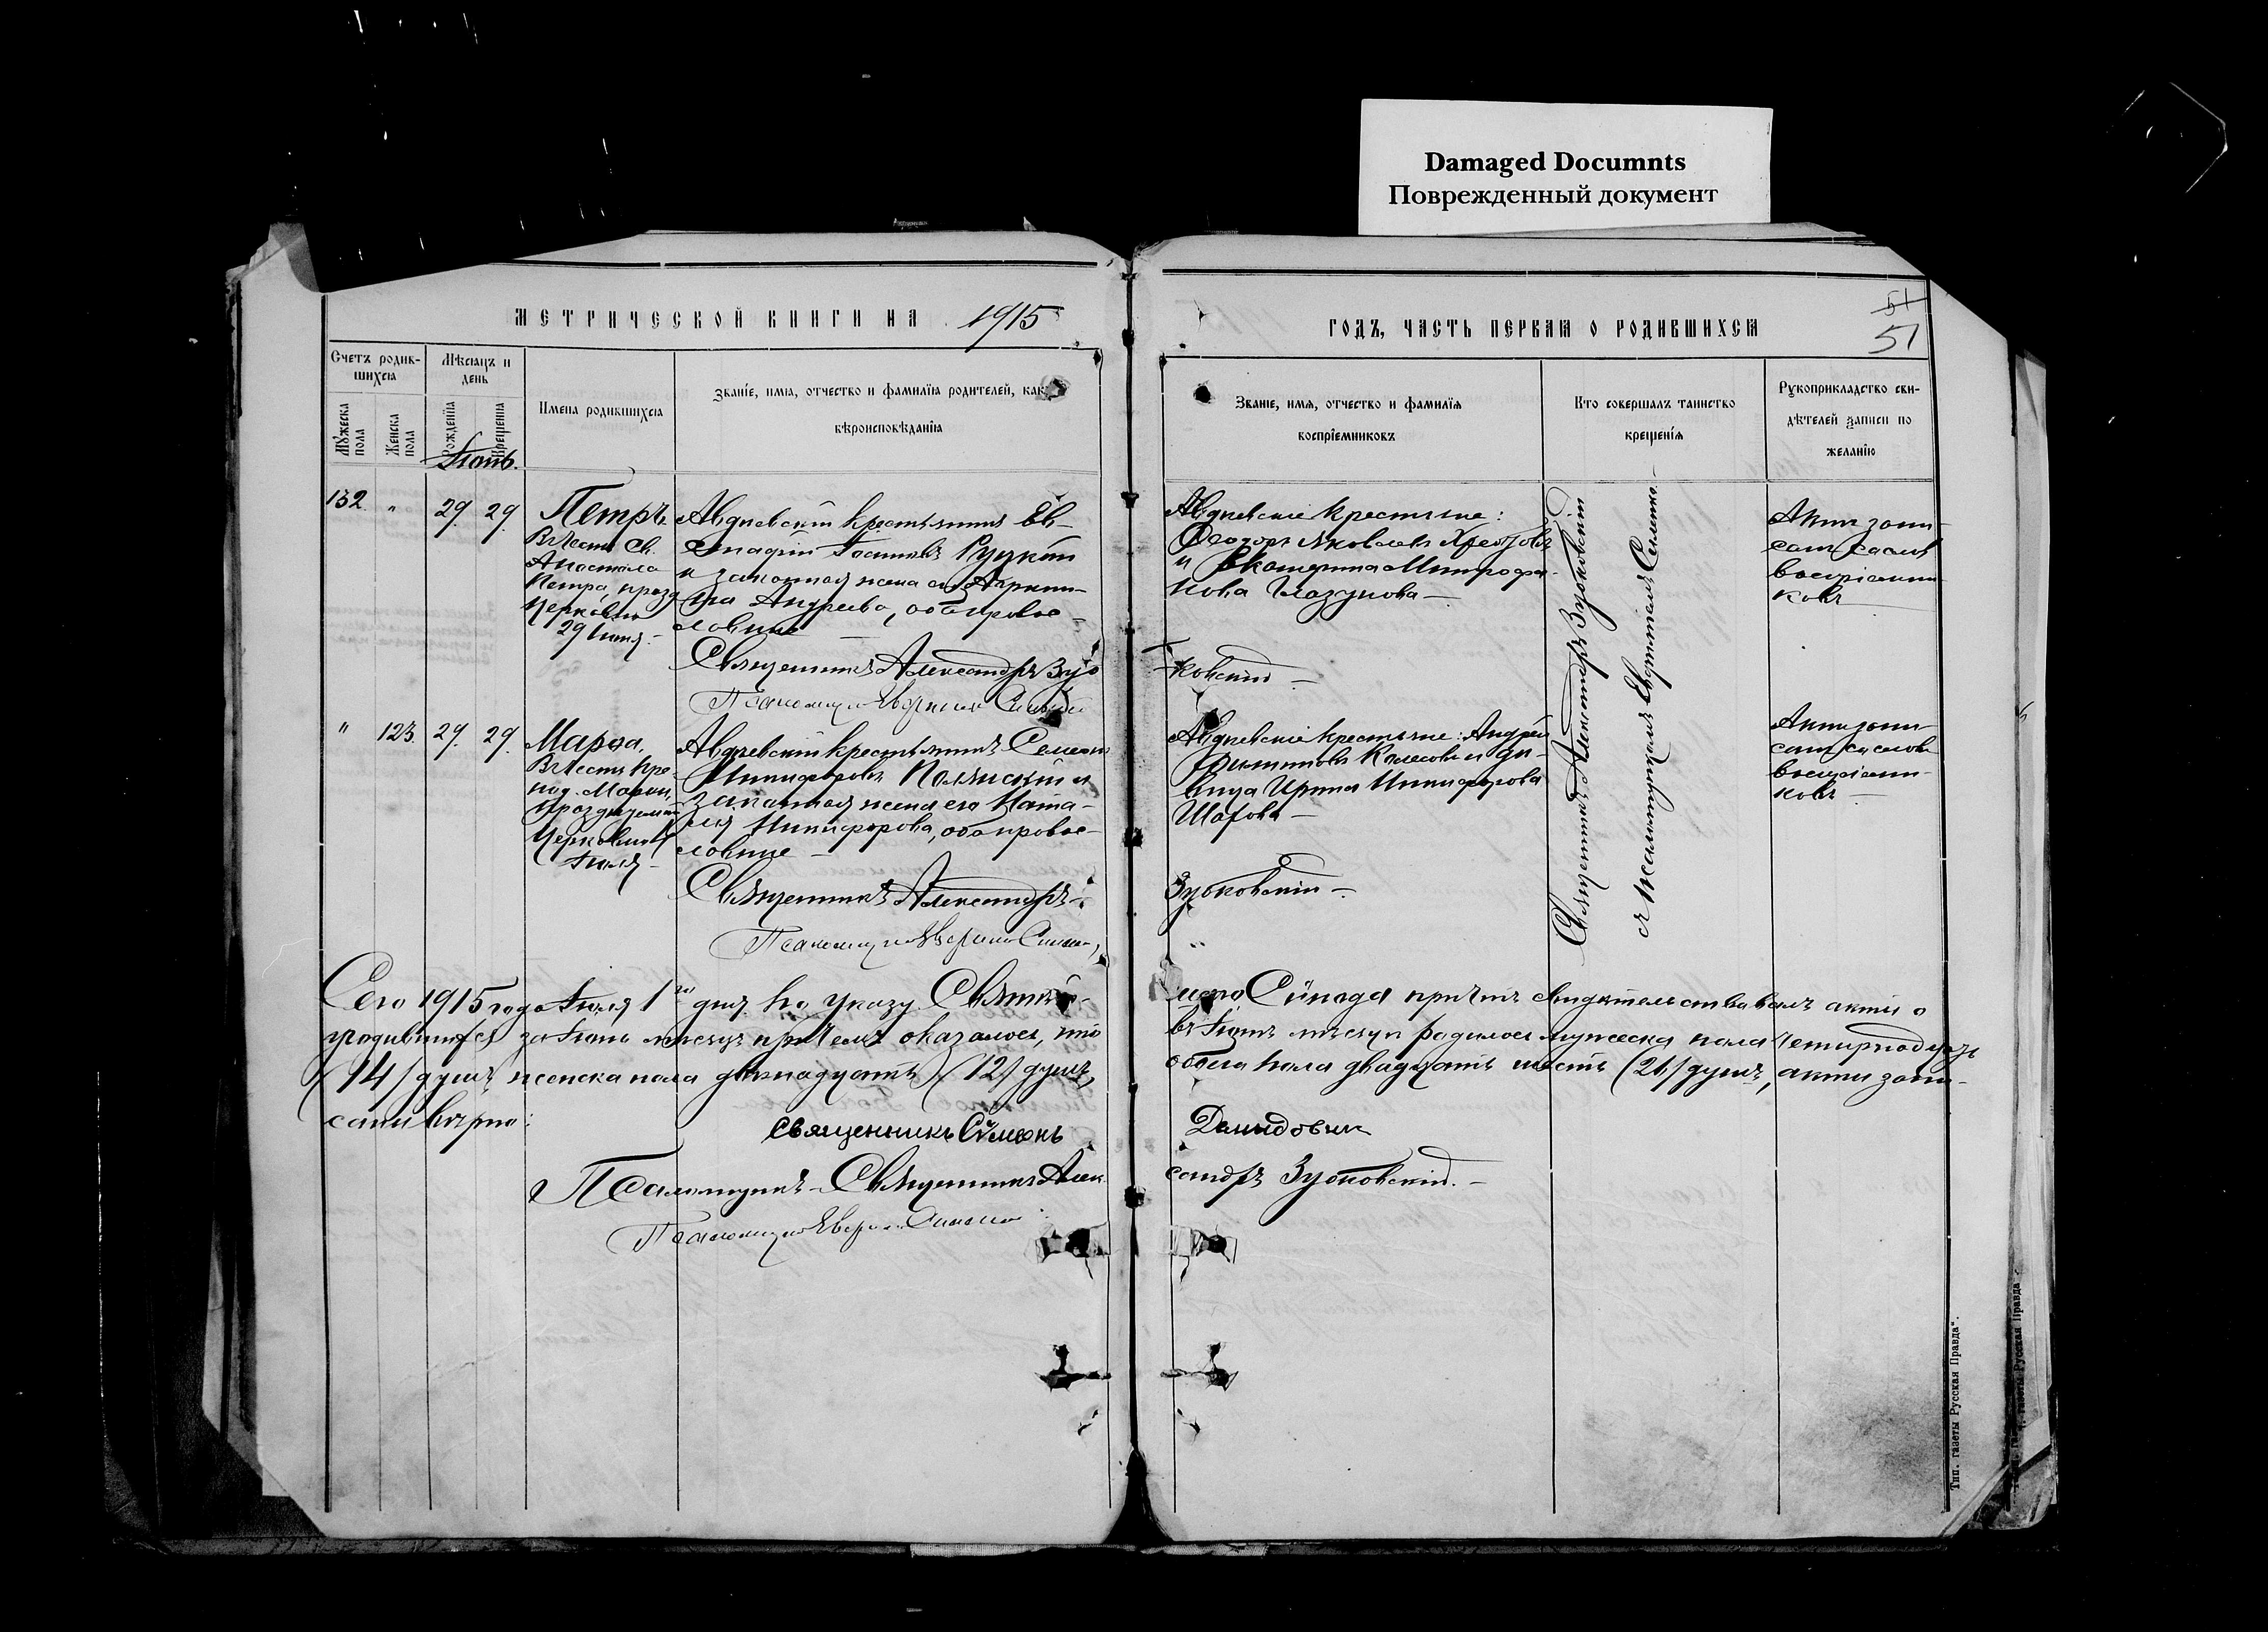 Damaged Documnts
Поврежденный документ
МЕТРИЧЕСКОЙ КНИГИ НА 1915
ГОДЪ, ЧАСТЬ ПЕРВАЯ О РОДИВШИХСЯ
51
51
Счетъ родив-
шихся
Мѣсяцъ и
день
Мужеска пола
Женска пола
Рожденія
Крещенія
Имена родившихся
Званіе, имя, отчество и фамилія родителей, как
вѣроисповѣданія
Званіе, имя, отчество и фамилія
воспріемниковъ
Кто совершалъ таинство
крещенія
Рукоприкладство сви-
дѣтелей записи по
желанію
Іюнь.
132. " 29. 29.
Петръ.
Въ честь Св.
Апостола
Петра, празд
Церковію
29 Іюня.
Авдѣевскій крестьянинъ Ев-
Руцкій
и законная жена его
Андреева, оба право-
славные
Священникъ Александръ Зуб
Авдѣевскіе крестьяне:
Ѳеодоръ Яковлевъ
и Екатерина Митрофа-
нова Глазунова
ковскій
Священникъ Александръ Зубковскій
съ псаломщикомъ
Актъ запи-
санъ со словъ
воспріемни-
ковъ
" 123. 29. 29.
Марѳа.
Въ честь Пре-
под. Марѳы,
празднуемой
Церковію
Іюля
Авдѣевскій крестьянинъ Семеонъ
Никифоровъ Полянскій и
законная жена его Ната-
лія Никифорова, оба право-
славные
Священникъ Александръ
Авдѣевскіе крестьяне: Андрей
Колесовъ и дѣ-
вица Ирина Никифорова
Зубковскій
Актъ запи-
санъ со словъ
воспріемни-
ковъ
Сего 1915 года Іюля 1го дня по указу Святѣй-
шаго Сѵнода причтъ свидѣтельствовалъ акты о
родившихся за Іюнь мѣсяцъ причемъ оказалось, что
въ Іюнѣ мѣсяцѣ родилось мужеска пола четырнадцать
(14) душъ, женска пола двѣнадцать (12) душъ,
обоего пола двадцать шесть (26) душъ, акты запи-
саны вѣрно:
Священникъ Сѵмеонъ
Демидович
Псаломщикъ Священникъ Алек
сандръ Зубковскій.
Тип. газеты Русская Правда".